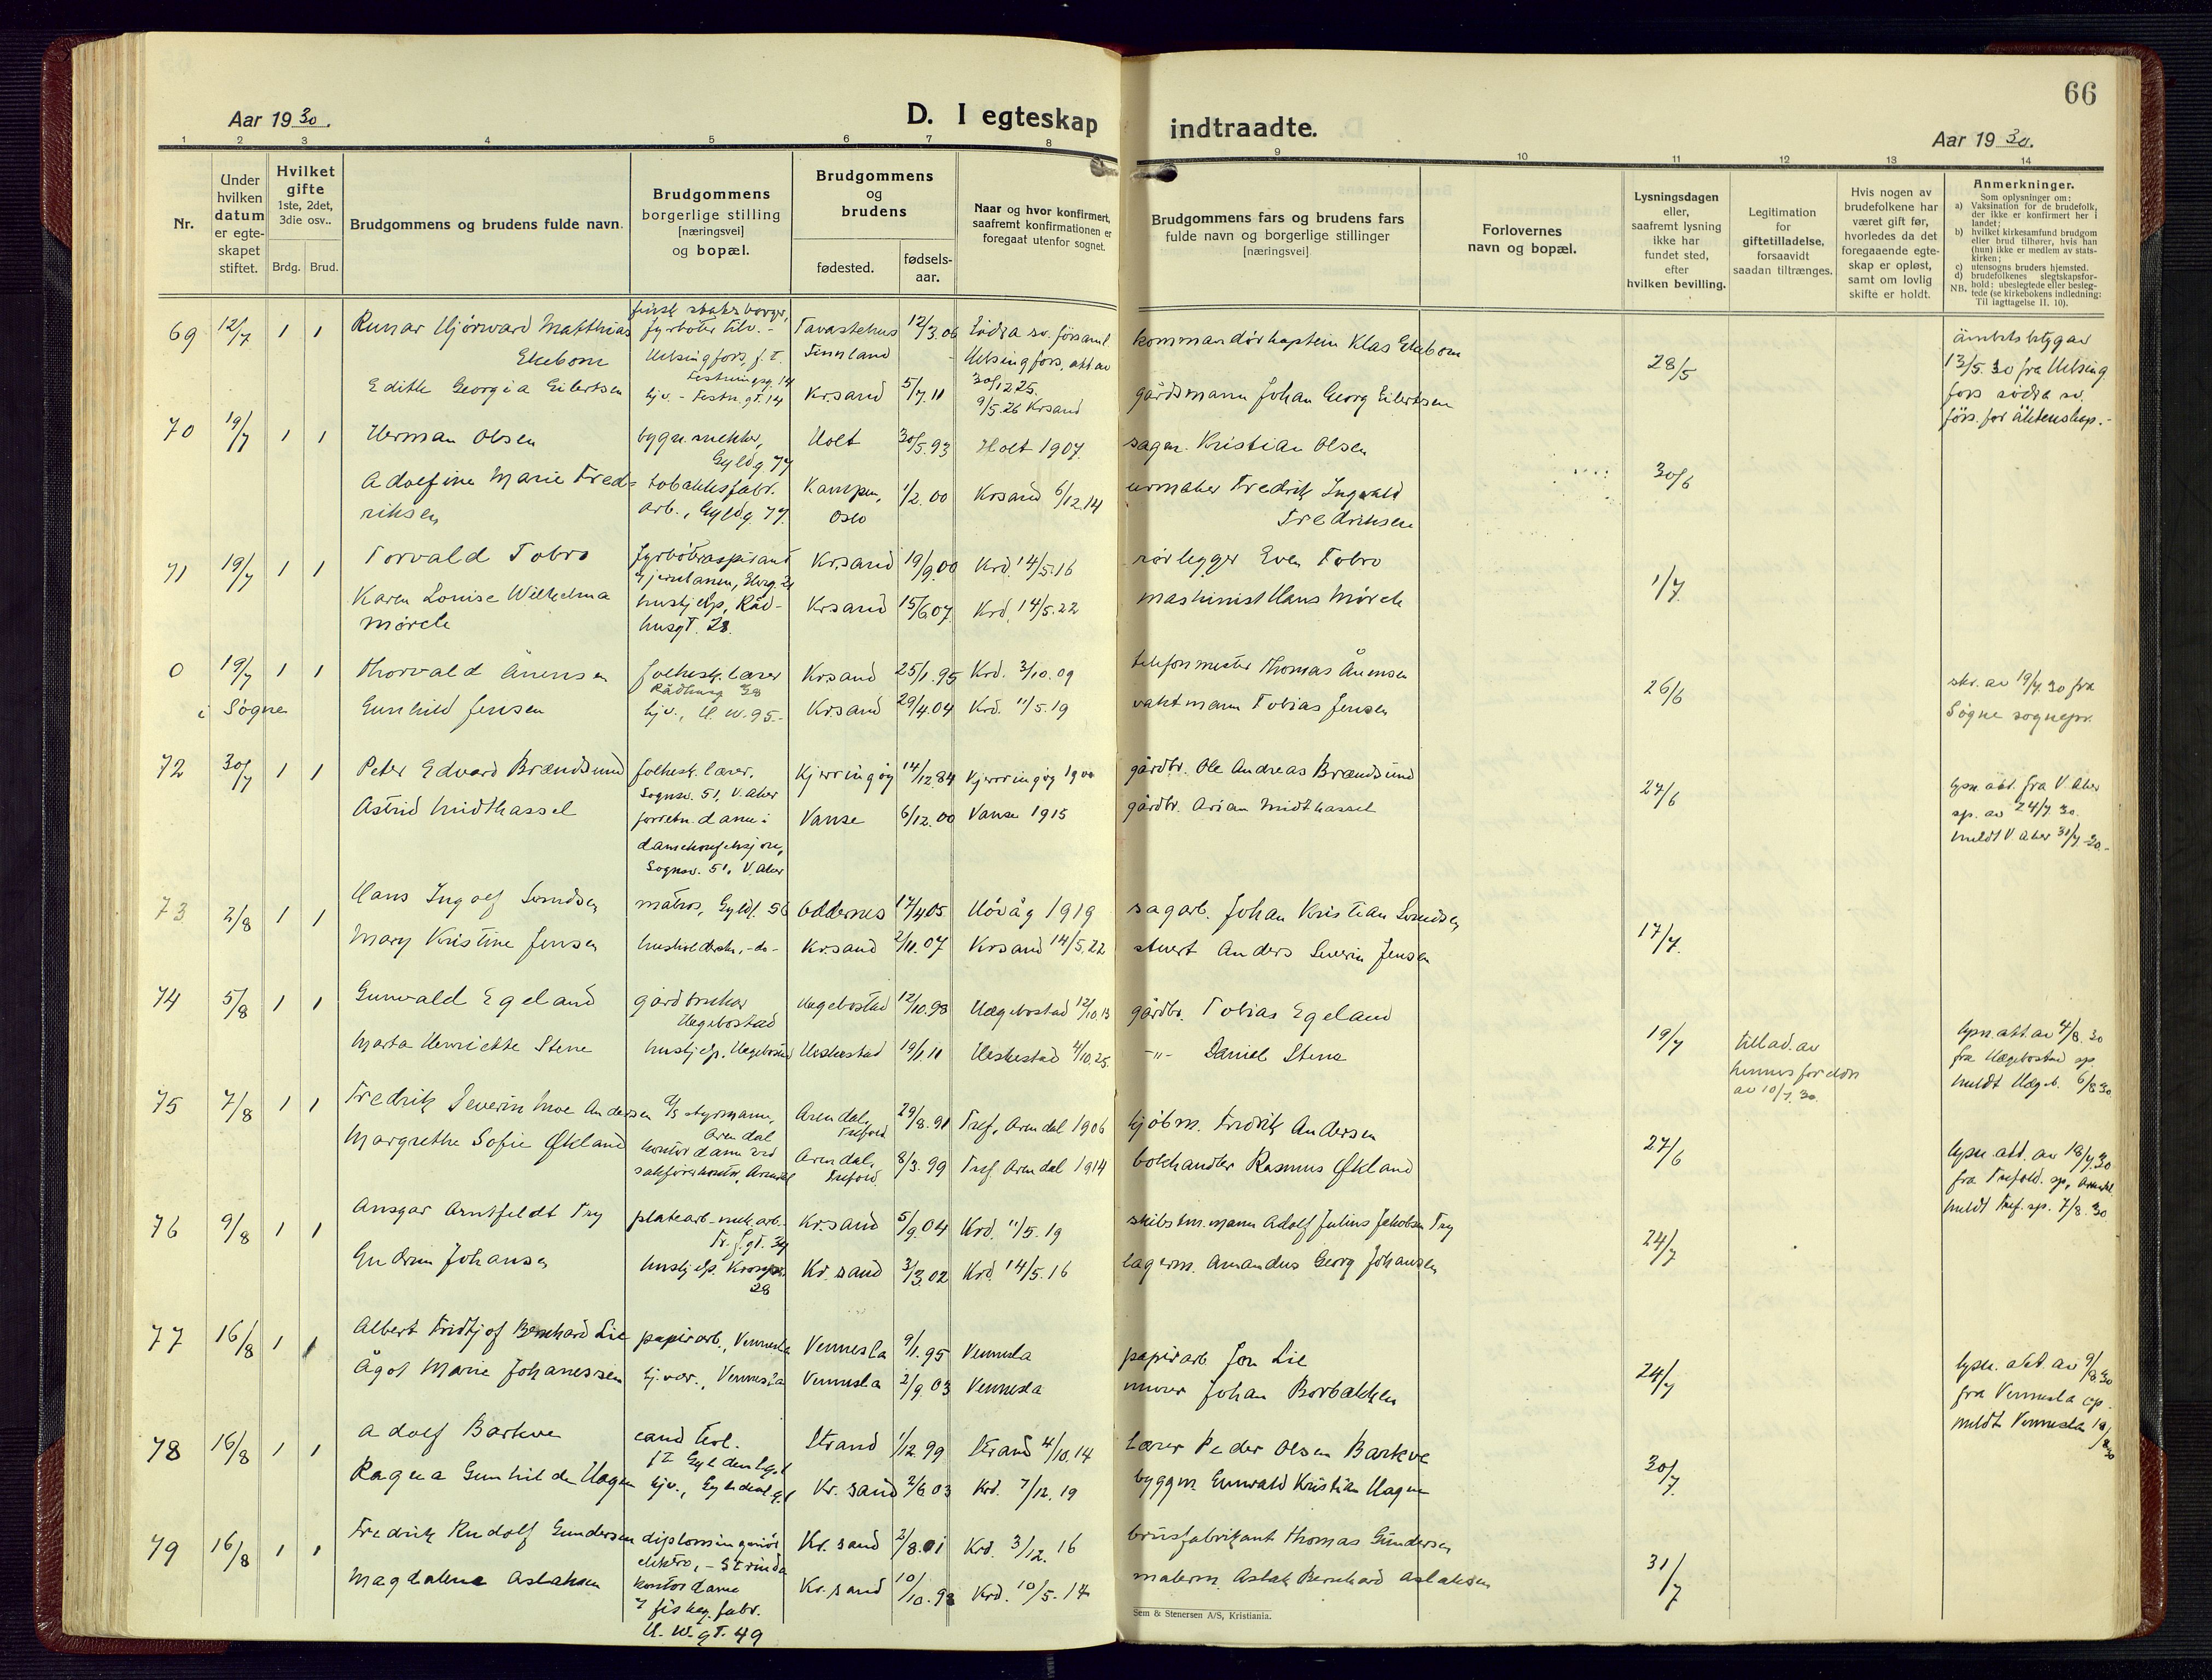 66
Aar 1930.
D. I egteskap indtraadte.
Aar 1930.
1 2 3 4 5 6 7 8 9 10 11 12 13 14
Nr.
Under hvilken datum er egteskapet stiftet.
Hvilket gifte 1ste, 2det, 3die osv..
Brdg. Brud.
Brudgommens og brudens fulde navn.
Brudgommens borgerlige stilling [næringsvei] og bopæl.
Brudgommens og brudens
fødested.
fødselsaar.
Naar og hvor konfirmert, saafremt konfirmationen er foregaat utenfor sognet.
Brudgommens fars og brudens fars fulde navn og borgerlige stillinger [næringsvei]
Forlovernes navn og bopæl.
Lysningsdagen eller, saafremt lysning ikke har fundet sted, efter hvilken bevilling.
Legitimation for giftetilladelse, forsaavidt saadan tiltrænges.
Hvis nogen av brudefolkene har været gift før, hvorledes da det foregaaende egteskap er opløst, samt om lovlig skifte er holdt.
Anmerkninger.
Som oplysninger om:
a) Vaksination for de brudefolk, der ikke er konfirmert her i landet;
b) hvilket kirkesamfund brudgom eller brud tilhører, hvis han (hun) ikke er medlem av statskirken;
c) utensogns bruders hjemsted.
d) brudefolkenes slegtskapsforhold: ubeslegtede eller beslegtede (se kirkebokens indledning: Til iagttagelse II. 10).
NB.
69 12/7 1 1 Runar Hjörward Matthias Ekebom finsk statsborger, fyrbøter Tavastehus Finnland 12/3.06 Södra sv. församl Helsingfors, att av 30/12 25. kommandörkaptein Klas Ekebom 28/5
Edith Georgia Eilertsen hjv. - Festn.gt. 14 Kr.sand 5/7.11 9/5.26 Krsand gårdsmann Johan Georg Eilertsen
13/5.30 fra Helsingfors södra sv. förs. for äktenskap.-
70 19/7 1 1 Herman Olsen bygn.snekker, Gyldg 77 Holt 30/5.93 Holt 1907. sagm. Kristian Olsen 30/6
Adolfine Marie Fredriksen tobakksfabr. arb., Gyldg. 77. Kampen, Oslo 1/2.00 Krsand 6/12.14 urmaker Fredrik Ingvald Fredriksen
71 19/7 1 1 Torvald Tobro fyrbøteraspirant Kr.sand 19/9.00 Krd. 14/5.16 rørlegger Even Tobro 1/7.
Karen Louise Wilhelma Mørch hushjelp, Rådhusgt. 28. Krsand 15/6.07. Krd. 14/5.22 maskinist Hans Mørch
0 19/7 i Søgne 1 1 Thorvald Ånensen folkesk.lærer Kr.sand 25/1.95 Krd. 3/10.09 telefonmester Thomas Ånensen 26/6 skr. av 19/7.30 fra Søgne sognepr.
Gunhild Jensen hjv., H.W. 95.- Kr.sand 29/4.04 Krd. 11/5.19 vaktmann Tobias Jensen
72 30/7 1 1 Peter Edvard Brændsund folkesk. lærer, Sognsv. 51, V. Aker Kjerringøy 14/12.84 Kjerringøy 1900 gårdbr. Ole Andreas Brændsund 27/6
Astrid Midthassel forretn.dame i Sognsv. 51, V. Aker Vanse 6/12.00 Vanse 1915 gårdbr. Arian Midthassel
lysn. att. fra V. Aker sp. av 24/7.30. meldt V. Aker 31/7.30.-
73 2/8 1 1 Hans Ingolf Svendsen matros, Gyldg. 56 Oddernes 17/4.05 Høvåg 1919 sagarb. Johan Kristian Svendsen 17/7.
Mary Kristine Jensen -do- Kr.sand 2/11.07 Krsand 14/5.22 stuert Anders Severin Jensen
74 5/8 1 1 Gunvald Egeland gårdbruker Hægebostad Hægebostad 12/10.98 Hægebostad 12/10.13 gårdbr. Tobias Egeland 19/7
Marta Henriette Stene hushjelp, Hægebostad Heskestad 19/1.11 Heskestad 4/10.25. -"- Daniel Stene
tillad. av hennes foreldre av 10/7.30.
lysn.att av 4/8.30 fra Hægebostad sp. meldt Hægeb. 6/8.30
75 7/8 1 1 Fredrik Severin Moe Andersen styrmann, Arendal Arendal, Trefold. 29/8.91 Tref., Arendal 1906 kjøbm. Fredrik Andersen 27/6
Margrethe Sofie Økland kontordame ved sakførerkontor, Arendal Arendal, Trefold. 8/3.99 Tref. Arendal 1914 bokhandler Rasmus Økland
lysn. att. av 18/7.30 fra Trefold. sp, Arendal. meldt Tref. sp. 7/8.30
76 9/8 1 1 Ansgar Arntfeldt Try platearb. Kr.sand 5/9.04 Krd. 11/5.19 skibstm.mann Adolf Julius Jakobsen Try 24/7
Gudrun Johansen hushjelp. 28 Kr.sand 3/3.02 Krd. 14/5.16 lagerm. Amandus Georg Johansen
77 16/8 1 1 Albert Fridtjof Bernhard Lie papirarb., Vennesla Vennesla 9/1.95 Vennesla papirarb Jon Lie 24/7
Ågot Marie Johanessen hj.vær., Vennesla Vennesla 2/9.03 Vennesla murer Johan Borbakken
lysn. att. av 9/8.30 fra Vennesla sp. meldt Vennesla
78 16/8 1 1 Adolf Barkve cand teol. Strand 1/12.99 Strand 4/10.14 lærer Peder Olsen Barkve 30/7.
Ragna Gunhilde Hagen hjv., Kr.sand 2/6 03 Krd. 7/12.19 byggm. Gunvald Kristian Hagen
79 16/8 1 1 Fredrik Rudolf Gundersen diplomingeniør elektro, - Strinda Kr.sand 2/8.01 Krd. 3/12.16 brusfabrikant Thomas Gundersen 31/7
Magdalene Aslaksen kontordame H.W.gt. 49 Kr.sand 10/10.98 Krd. 10/5.14 malerm. Aslak Bernhard Aslaksen
Sem & Stenersen A/S, Kristiania.